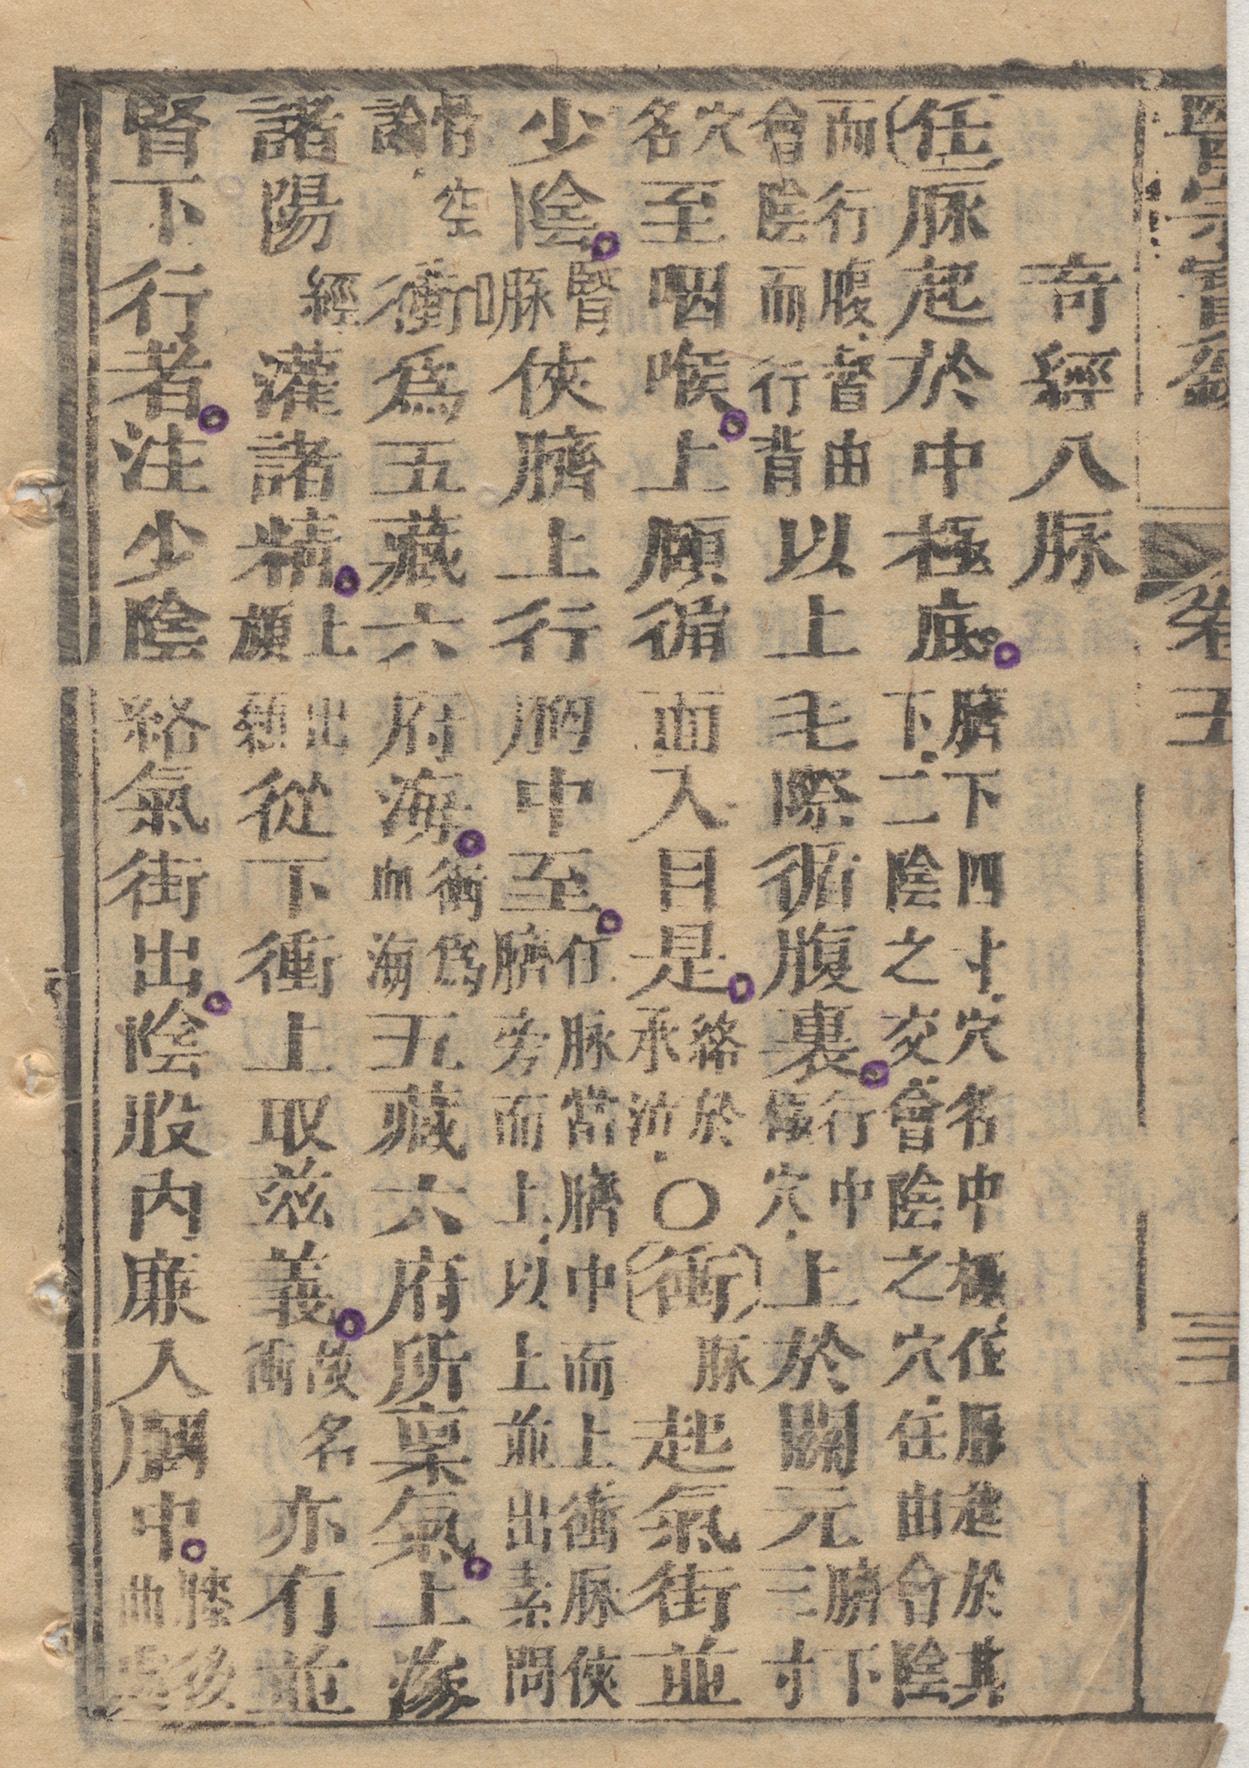 醫宗寶 卷五
奇經八脉
任脉起於中極底臍下四寸穴名中極任脉起於其下二陰之交會陰之穴任由會陰
而行腹督由會陰而行背以上毛際循腹裏行中極穴上於關元臍下三寸
穴名至咽喉上頤循面入目是絡於承泣○衝脉起氣街並
少陰腎脉俠臍上行胸中至任脉當臍中而上衝脉俠臍旁而上以上並出素問
骨空論衝爲五藏六府海衝爲血海五藏六府所稟氣上滲
諸陽經灌諸精上出頏顙從下衝上取兹義故名衝亦有並
腎下行者注少陰絡氣街出陰股內廉入膕中膝後曲處